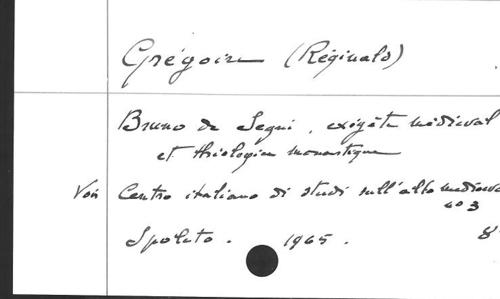 Grégoire (Réginald)
Bruno de Segni, exégète médiéval
et théologien monastique
Voir Centro italiano di studi sull'alto medioevo
403
Spoleto. 1965. 8